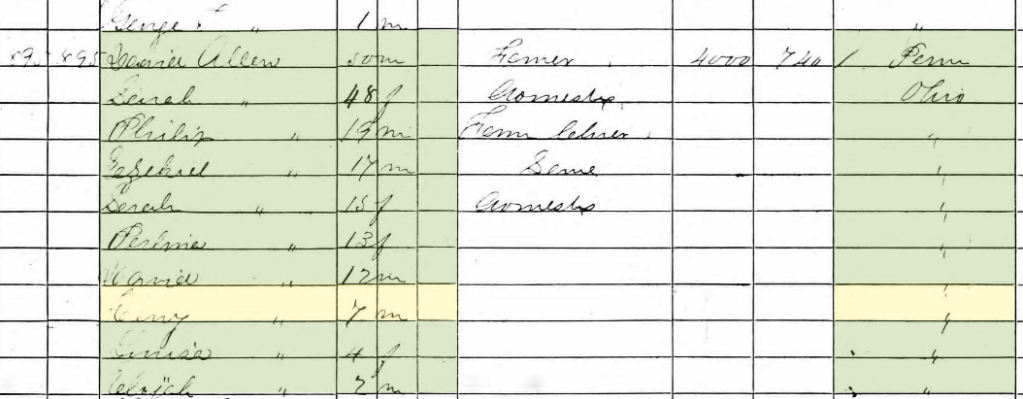 George F " 1 m "
895 895 Daniel Allen 50 m Farmer 4000 740 / Penn
Sarah " 48 f Domestic Ohio
Philip " 19 m Farm Laborer "
Ezekiel " 17 m Same "
Sarah " 15 f Domestic "
13 f "
Daniel " 12 m "
Henry " 7 m "
Louisa " 4 f "
Elijah " 2 m "